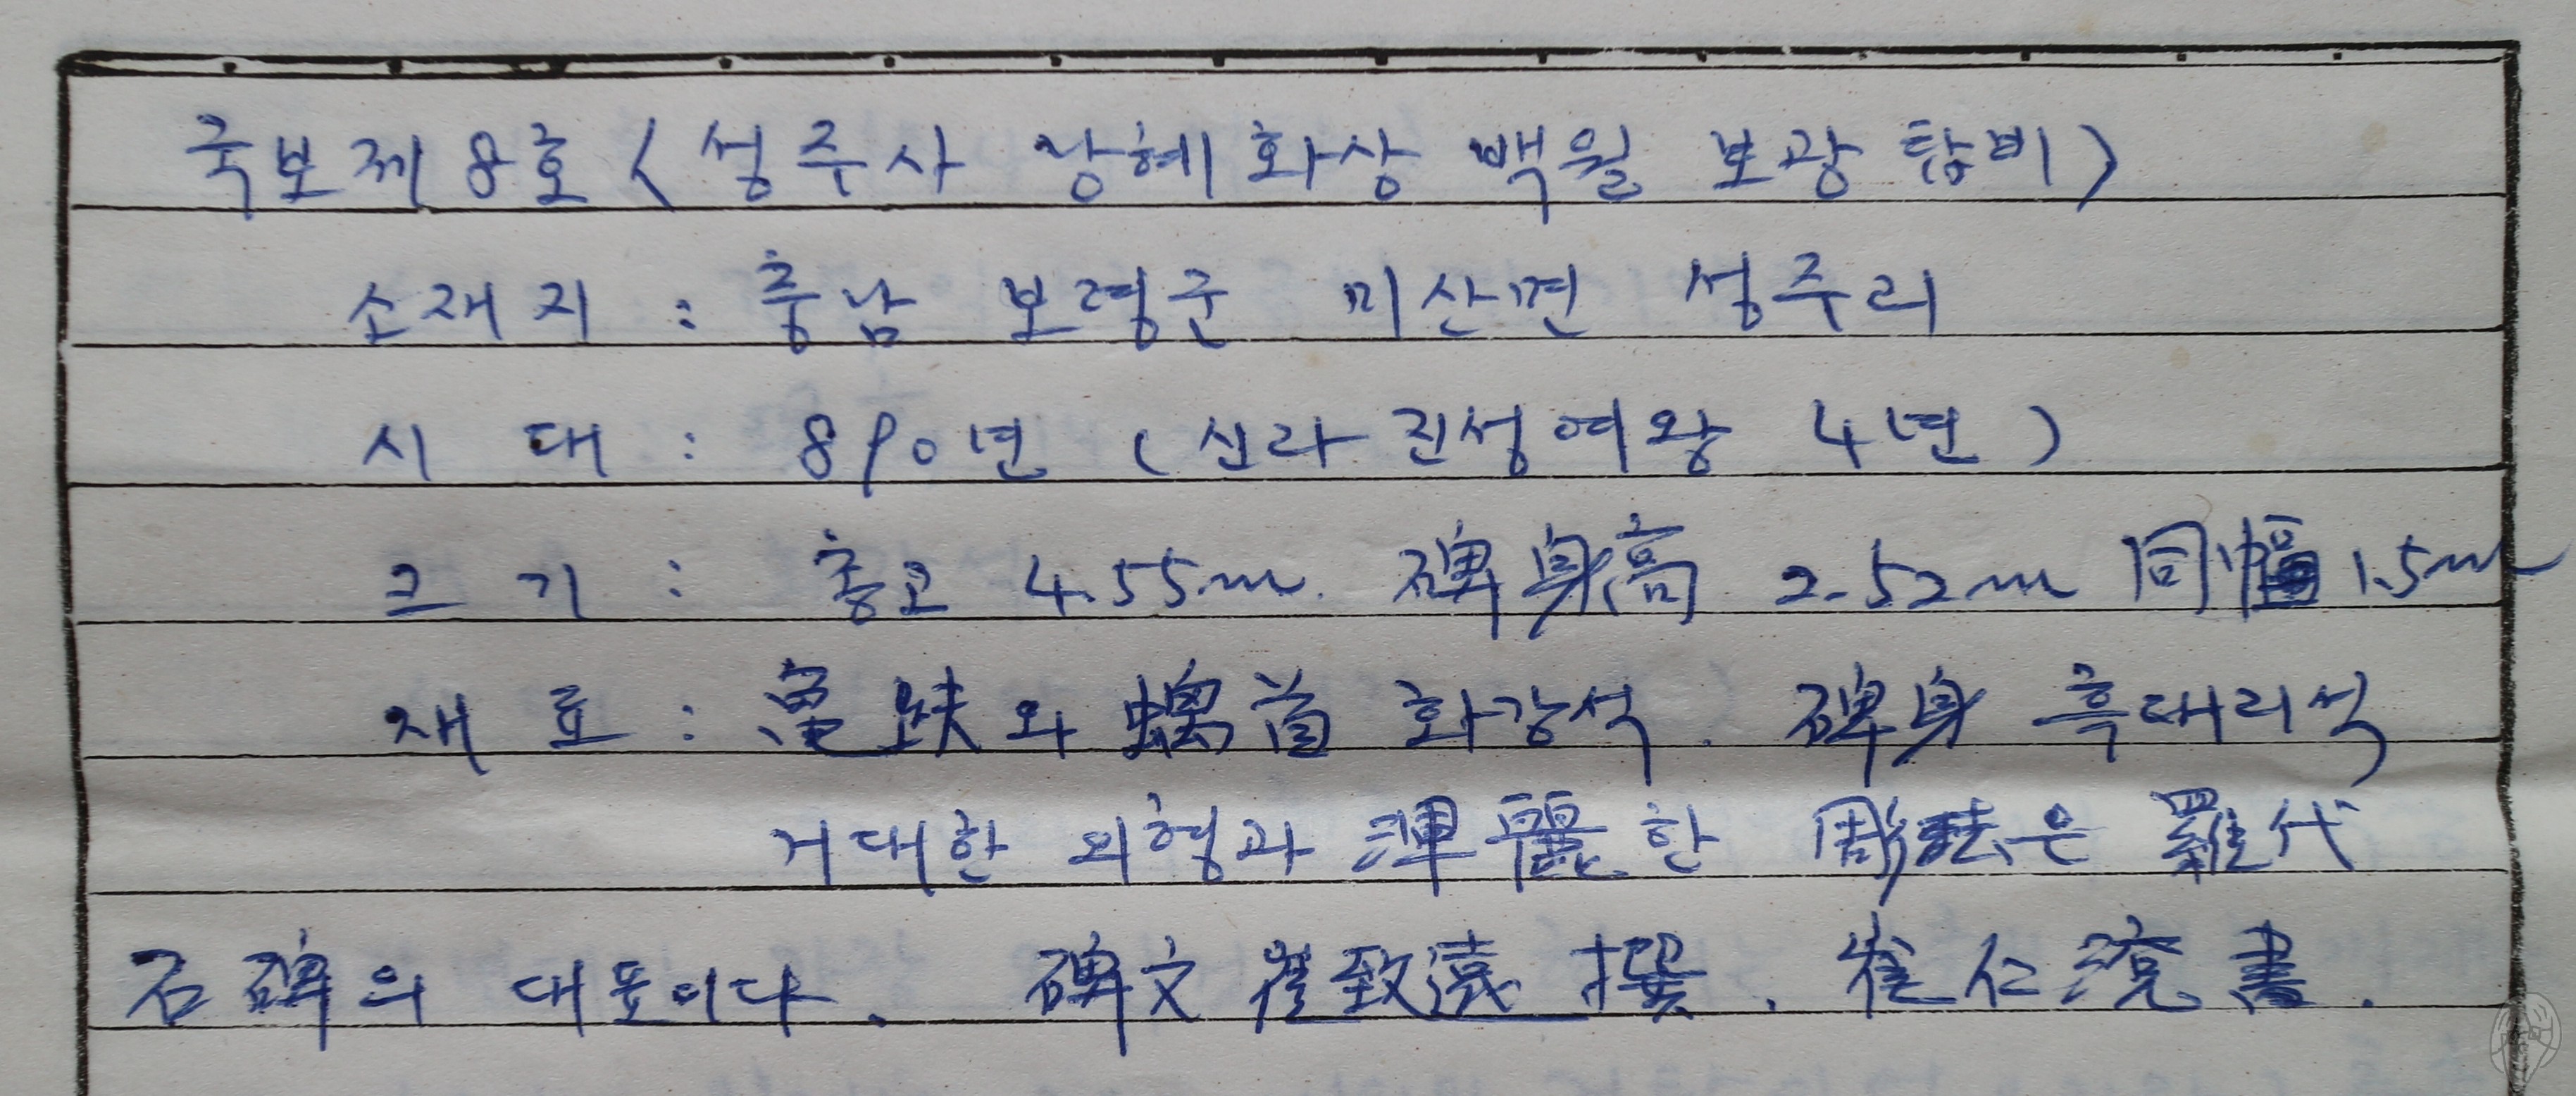 국보제8호〈성주사 낭혜화상 백월 보광탑비〉
소재지 : 충남 보령군 미산면 성주리
시 대 : 890년 (신라 진성여왕 4년)
크 기 : 총고 4.55m. 碑身高 2.52m 同幅 1.5m
재 료 : 龜趺와 螭首 화강석. 碑身 흑대리석
거대한 외형과 渾麗한 彫法은 羅代
石碑의 대표이다. 碑文 崔致遠 撰. 崔仁滾 書.